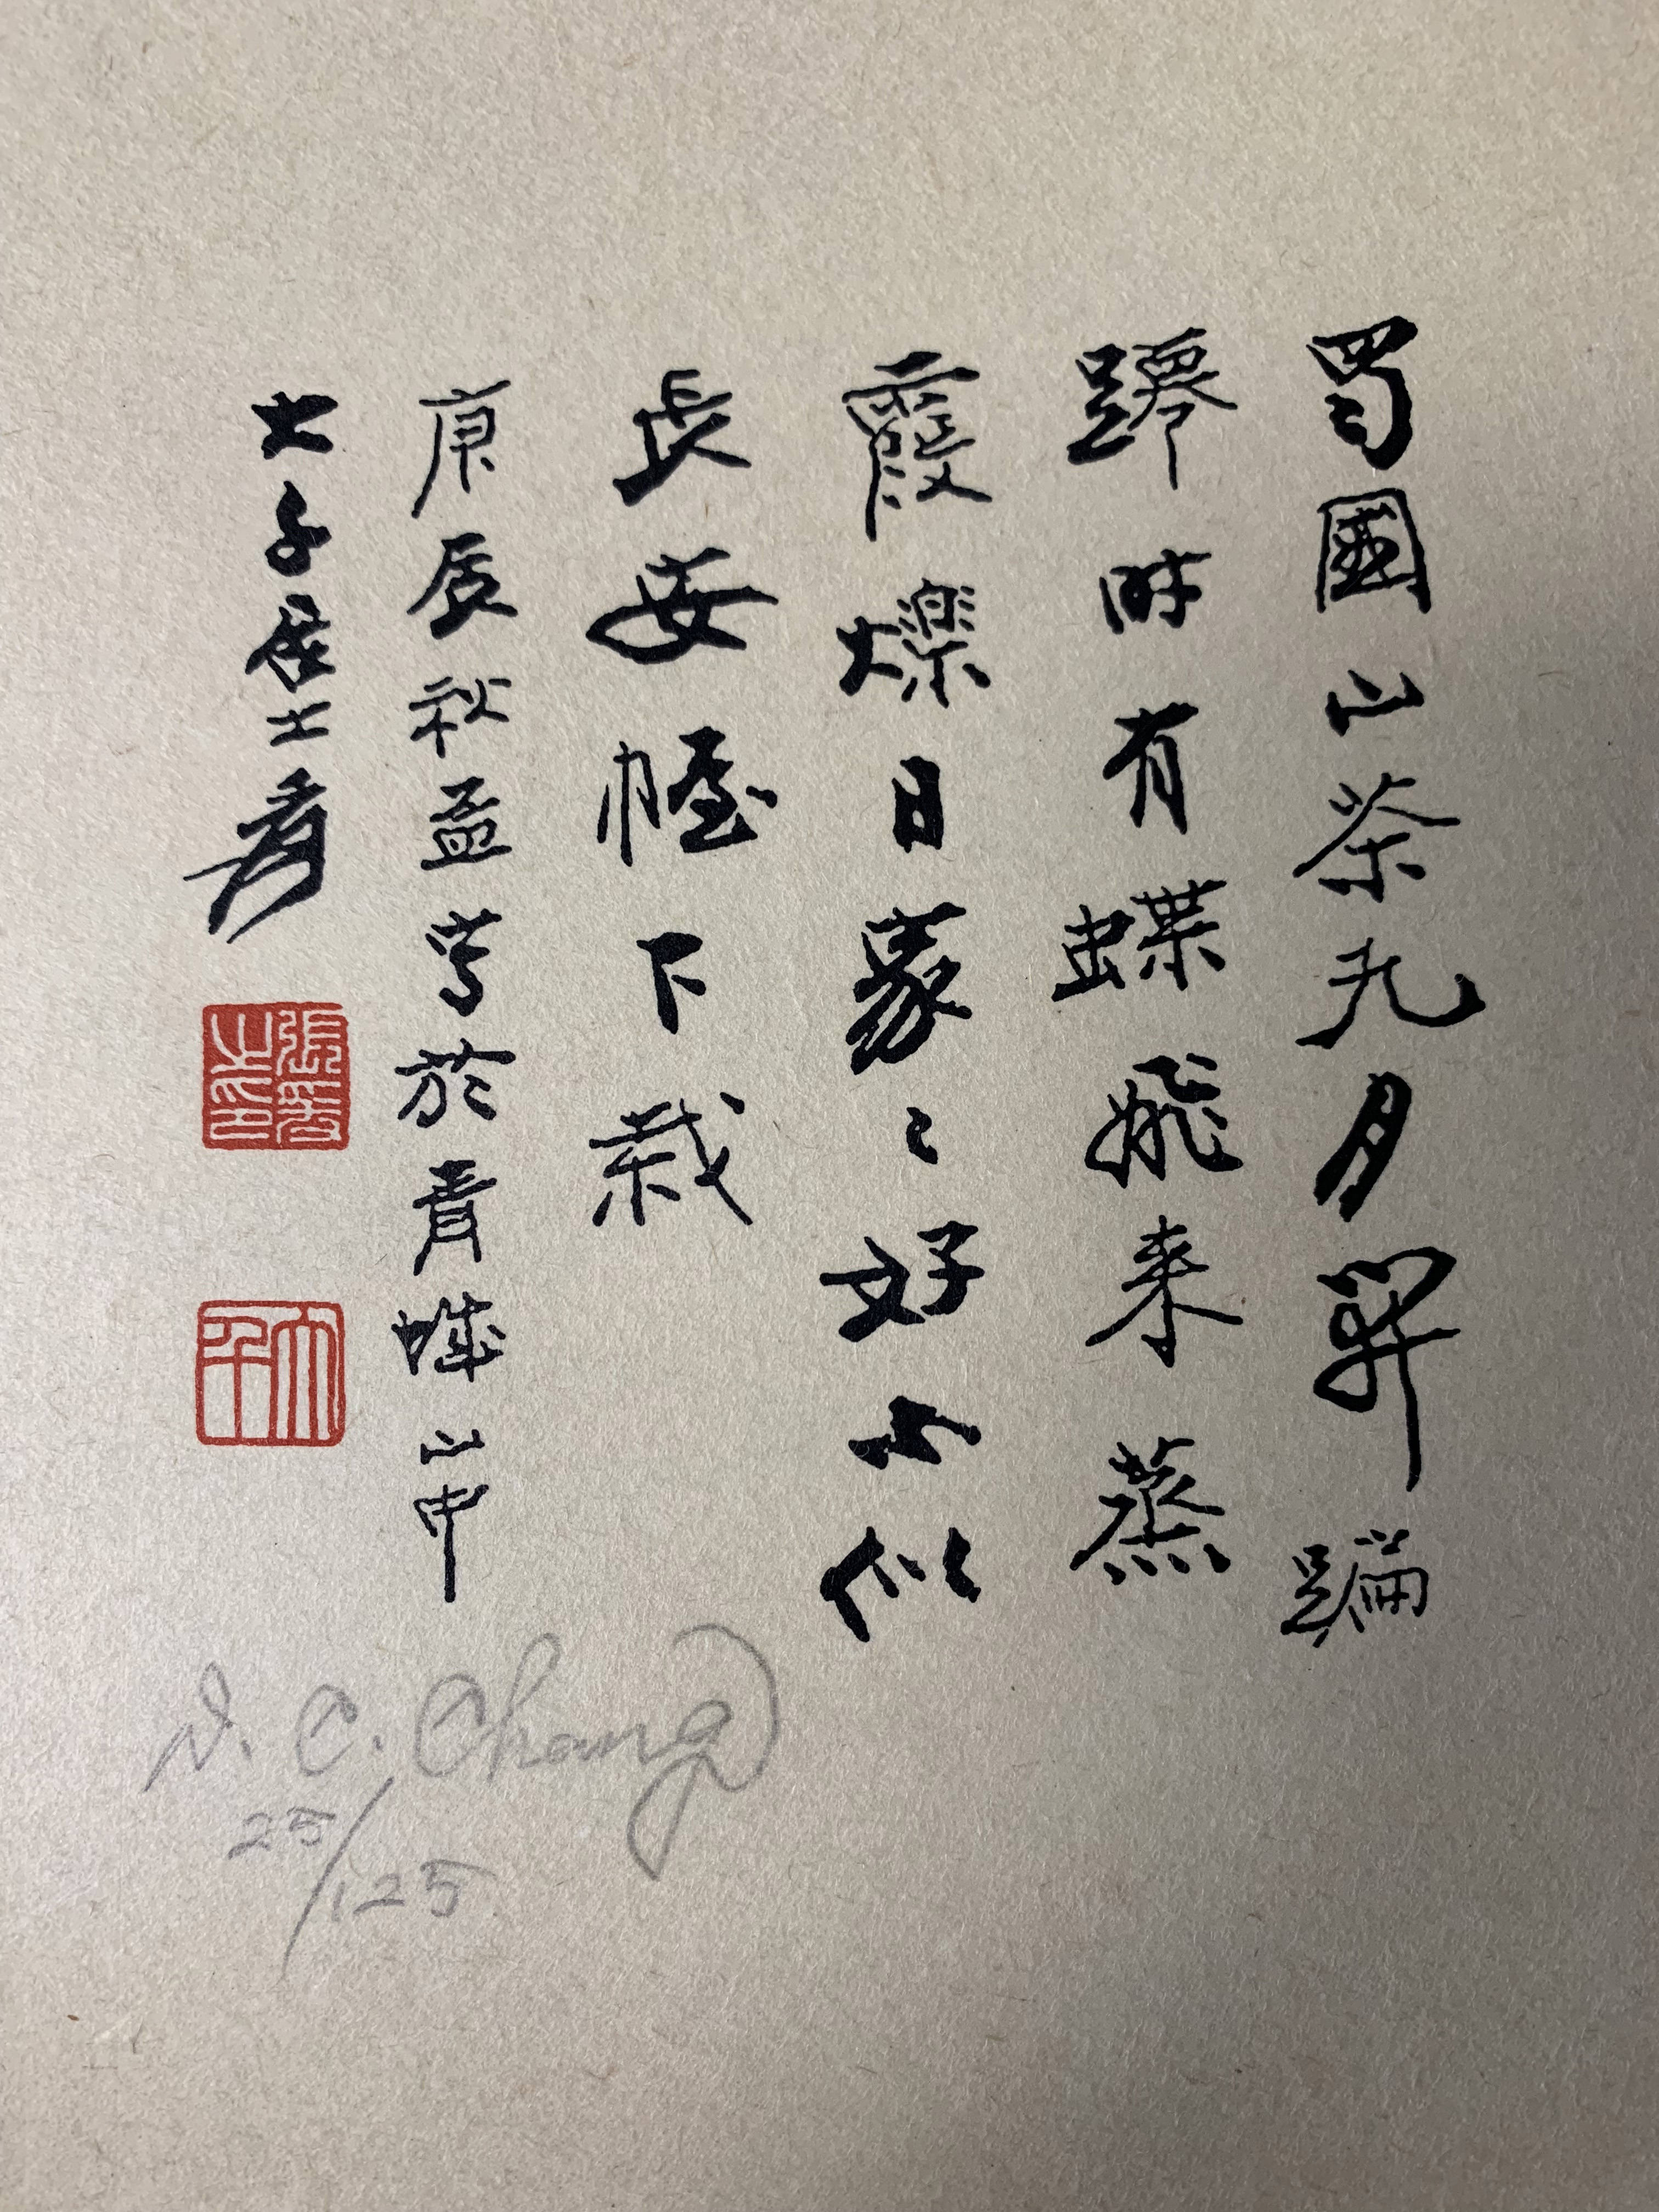 蜀國山茶九月開蹁
躚時有蝶飛来蒸
霞爍日家〻好不似
長安幄下栽
庚辰秋孟写於青城山中
大千居士爰
張爰之印
大千
D. C. Chang
25/125